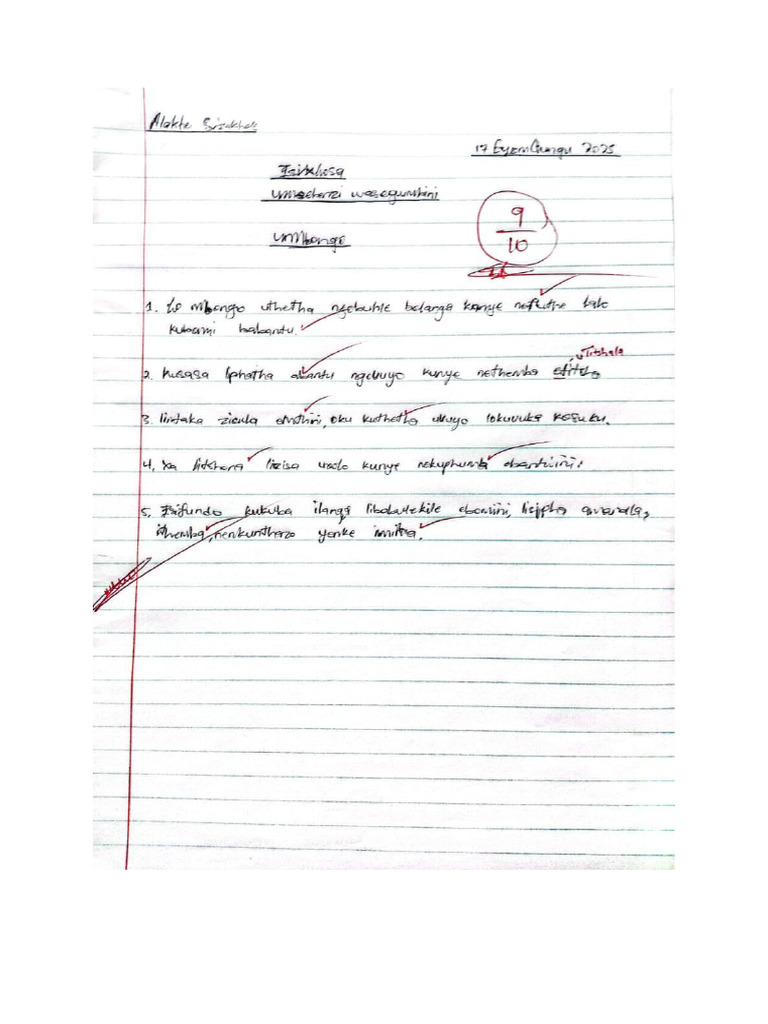 17 EyomQungu 2025
IsiXhosa
Umsebenzi wasegumbini
UMbongo
9
10
1. Lo mbongo uthetha ngobuhle belanga kanye nefuthe lalo
kubomi babantu.
Titshala
2. kusasa liphatha abantu ngovuyo kunye nethemba
3. Iintaka zicula emthini, oku kuthetha uvuyo lokuvuka kosuku.
4. Xa litshona lizisa uxolo kunye nokuphumla ebantwini.
5. Isifundo kukuba ilanga libalulekile ebomini, lisipha amandla,
ithemba, nenkuthazo yonke imihla.